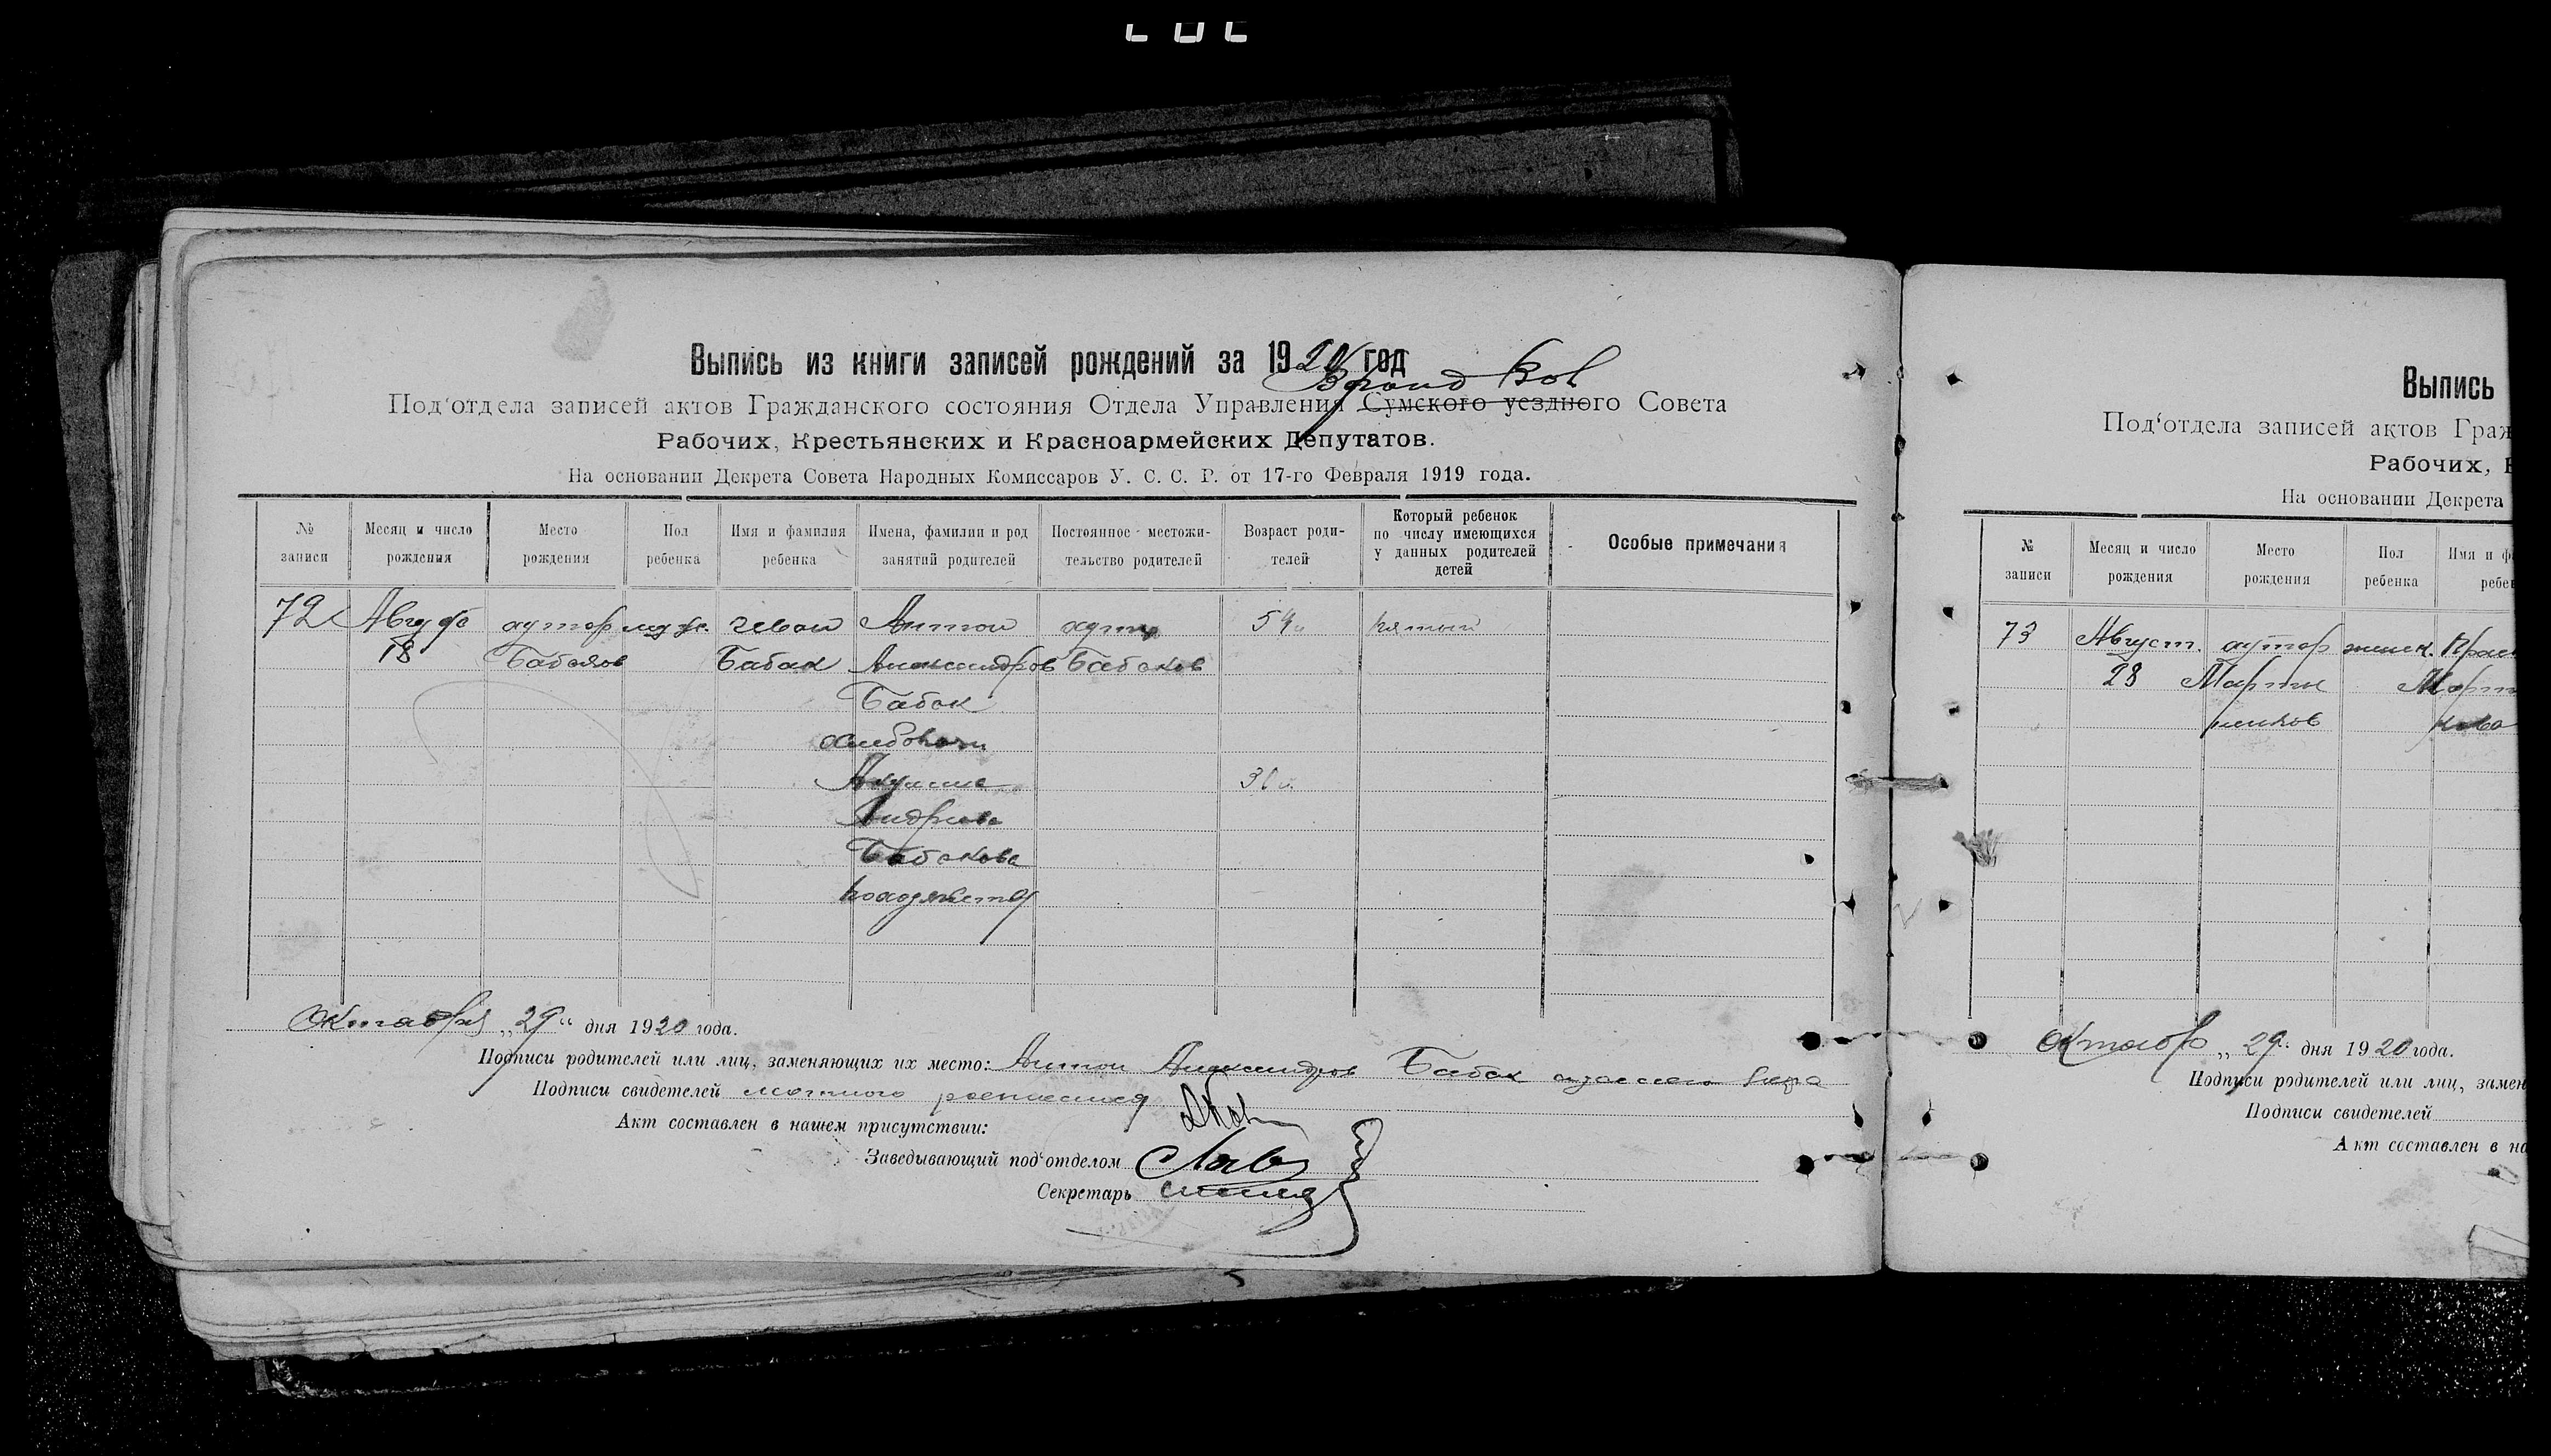 Выпись из книги записей рождений за 1920 год
Под‘отдела записей актов Гражданского состояния Отдела Управления Сумского уездного Совета
Рабочих, Крестьянских и Красноармейских Депутатов.
На основании Декрета Совета Народных Комиссаров У. С. С. Р. от 17-го Февраля 1919 года.
№ записи
Месяц и число рождения
Место рождения
Пол ребенка
Имя и фамилия ребенка
Имена, фамилии и род занятий родителей
Постоянное местожительство родителей
Возраст родителей
Который ребенок по числу имеющихся у данных родителей детей
Особые примечания
72 Август хутор муж. Иван Антон хутор 54 пятый
18 Бабаков Бабак Александров Бабаков
Бабак
хлебопаш
31
Андриева
Бабакова
Октября „29“ дня 1920 года.
Подписи родителей или лиц, заменяющих их место: Антон Александров Бабак
Подписи свидетелей
Акт составлен в нашем присутствии:
Заведывающий под‘отделом
Секретарь
Выпись
Под‘отдела записей актов Граж
Рабочих, К
На основании Декрета
№ записи
Месяц и число рождения
Место рождения
Пол ребенка
Имя и ф
ребе
73 Август. хутор женск.
28 Марты Март
ненков кова
Октября „29“ дня 1920 года.
Подписи родителей или лиц, замен
Подписи свидетелей
Акт составлен в на